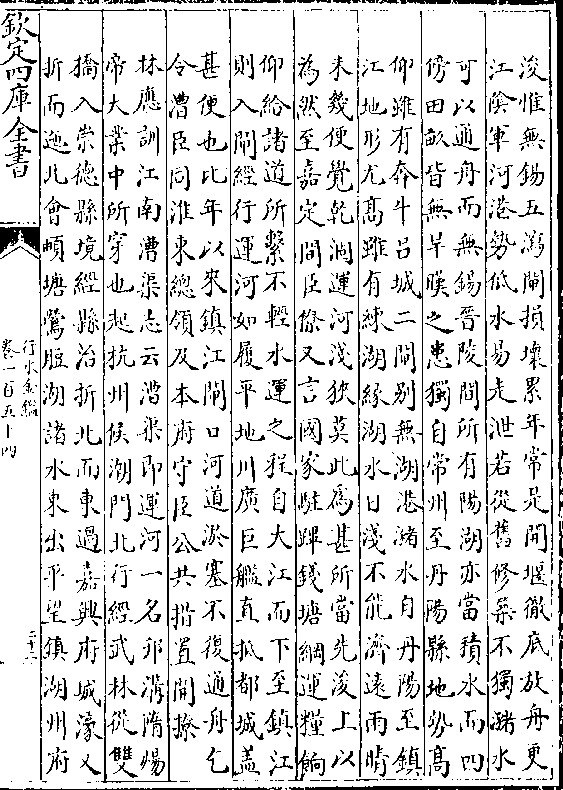 浚惟無錫五瀉閘損壞累年常是開堰徹底放舟更
江隂軍河港勢低水易走泄若從舊修築不獨潴水
可以通舟而無錫晉陵間所有陽湖亦當積水而四
傍田畝皆無旱暵之患獨自常州至丹陽縣地勢髙
仰雖有奔牛吕城二閘别無湖港潴水自丹陽至鎮
江地形尤髙雖有練湖緣湖水日淺不能濟逺雨晴
未幾便覺乾涸運河淺狹莫此為甚所當先浚上以
為然至嘉定間臣僚又言國家駐蹕錢塘綱運糧餉
仰給諸道所繫不輕水運之程自大江而下至鎮江
則入閘經行運河如履平地川廣巨艦直抵都城葢
甚便也比年以來鎮江閘口河道淤塞不復通舟乞
令漕臣同淮東總領及本府守臣公共措置開撩
林應訓江南漕渠志云漕渠即運河一名邗溝隋煬
帝大業中所穿也起杭州候潮門北行經武林從雙
橋入崇德縣境經縣治折北而東過嘉興府城濠又
折而迤北會㟲塘鶯脰湖諸水東出平望鎮湖州府
欽定四庫全書
行水金鑑
卷一百五十四
二十二